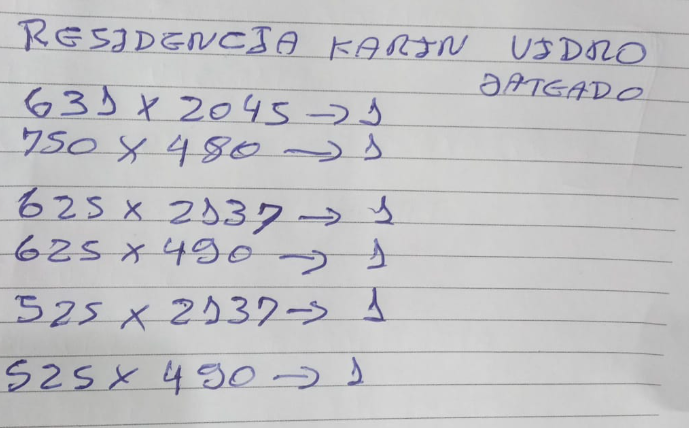 RESIDENCIA KARIN VIDRO
JATEADO
631 x 2045 → 1
750 x 480 → 1
625 x 2137 → 1
625 x 490 → 1
525 x 2137 → 1
525 x 490 → 1